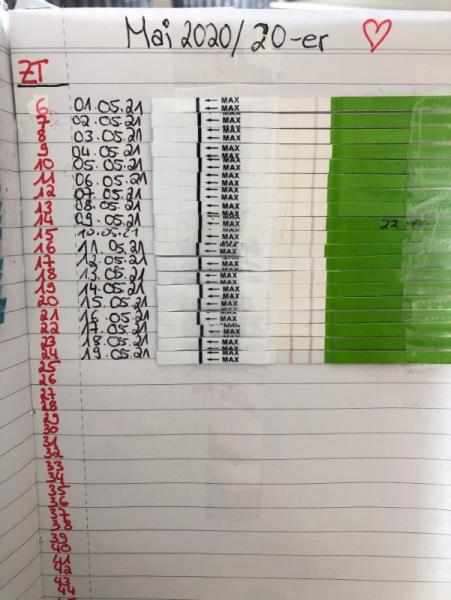 Mai 2020/20-er
ZT
6 01.05.21 ← MAX
7 02.05.21 ← MAX
8 03.05.21 ← MAX
9 04.05.21 ← MAX
10 05.05.21 ← MAX
11 06.05.21 ← MAX
12 07.05.21 ← MAX
13 08.05.21 ← MAX
14 09.05.21 ← MAX
15 10.05.21 ← MAX
16 11.05.21 ← MAX
17 12.05.21 ← MAX
18 13.05.21 ← MAX
19 14.05.21 ← MAX
20 15.05.21 ← MAX
21 16.05.21 ← MAX
22 17.05.21 ← MAX
23 18.05.21 ← MAX
24 19.05.21 ← MAX
25
26
27
28
29
30
31
32
33
34
35
36
37
38
39
40
41
42
43
44